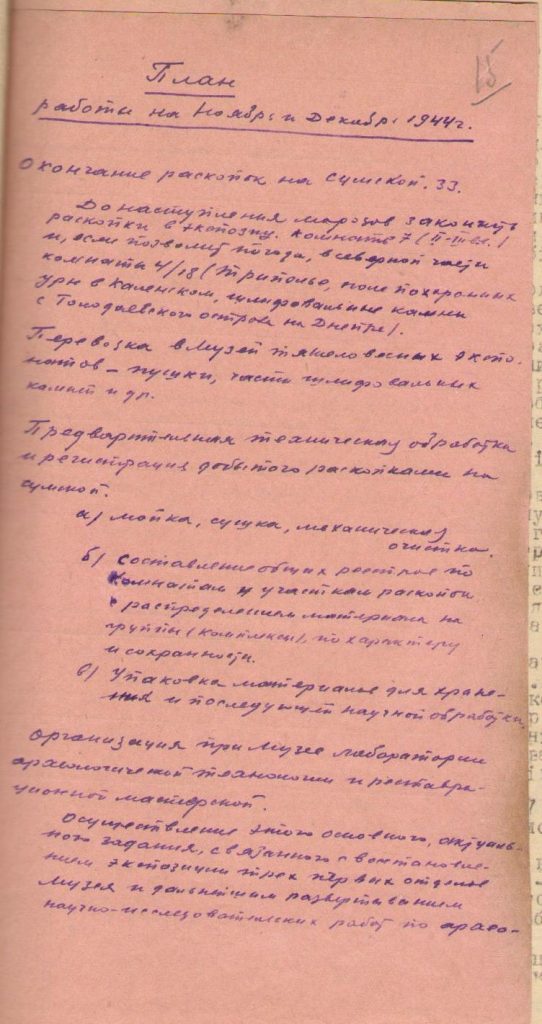 15
План
работы на Ноябрь и Декабрь 1944 г.
Окончание раскопок на Сумской. 33.
До наступления морозов закончить
раскопки в экпозиц. комнате 7 (II-III вв.)
и, если позволит погода, в северной части
комнаты 4/18 (Триполье, поле похоронных
урн в Каменском, шлифовальные камни
с Голодаевского острова на Днепре).
Перевозка в Музей тяжеловесных экспо-
натов – пушки, части шлифовальных
камней и др.
Предварительная техническая обработка
и регистрация добытого раскопками на
Сумской.
а) мойка, сушка, механическая
очистка.
б) составление общих реестров по
комнатам и участкам раскопок
с распределением материала на
группы (комплексы), по характеру
и сохранности.
в) Упаковка материалов для хране-
ния и последующей научной обработки.
Организация при Музее лаборатории
археологической технологии и реставра-
ционной мастерской.
Осуществление этого основного, актуаль-
ного задания, связанного с восстановле-
нием экпозиции трех первых отделов
Музея и дальнейшим развертыванием
научно-исследовательских работ по архео-